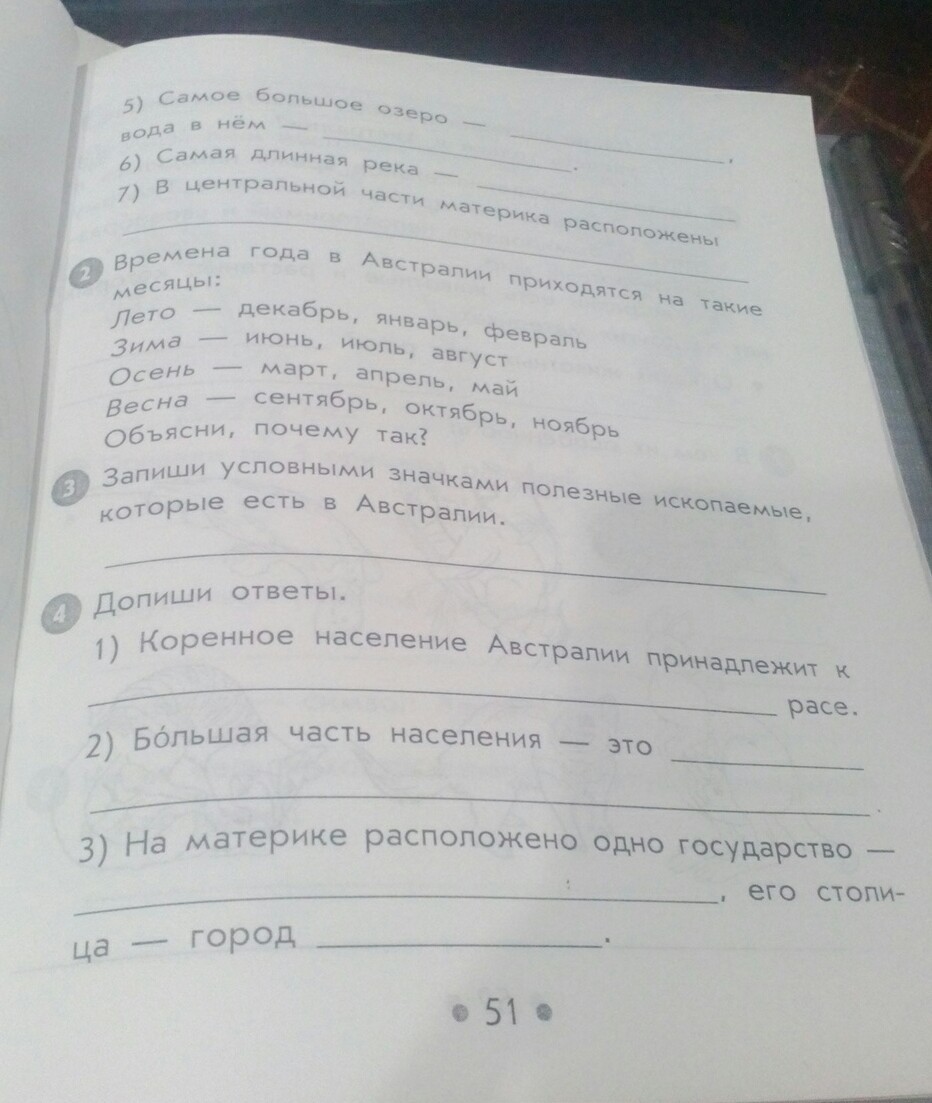 5) Самое большое озеро — ,
вода в нём — .
6) Самая длинная река —
7) В центральной части материка расположены
2 Времена года в Австралии приходятся на такие
месяцы:
Лето — декабрь, январь, февраль
Зима — июнь, июль, август
Осень — март, апрель, май
Весна — сентябрь, октябрь, ноябрь
Объясни, почему так?
3 Запиши условными значками полезные ископаемые,
которые есть в Австралии.
4 Допиши ответы.
1) Коренное население Австралии принадлежит к
расе.
2) Бо́льшая часть населения — это
.
3) На материке расположено одно государство —
, его столи-
ца — город .
• 51 •